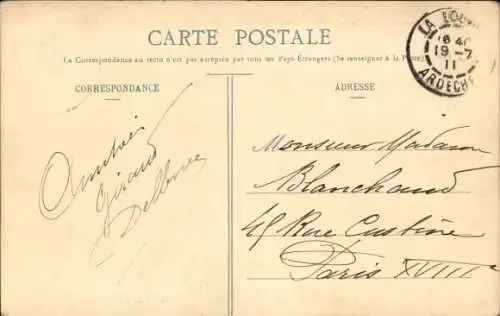 CARTE POSTALE
La Correspondance au recto n'est pas acceptée par tous les Pays Etrangers (Se renseigner à la Poste).
CORRESPONDANCE
ADRESSE
LA
16 40
19 - 7
11
ARDECHE
Amitiés
Giraud
Monsieur Madame
Blanchaud
45 Rue Custine
Paris XVIII e